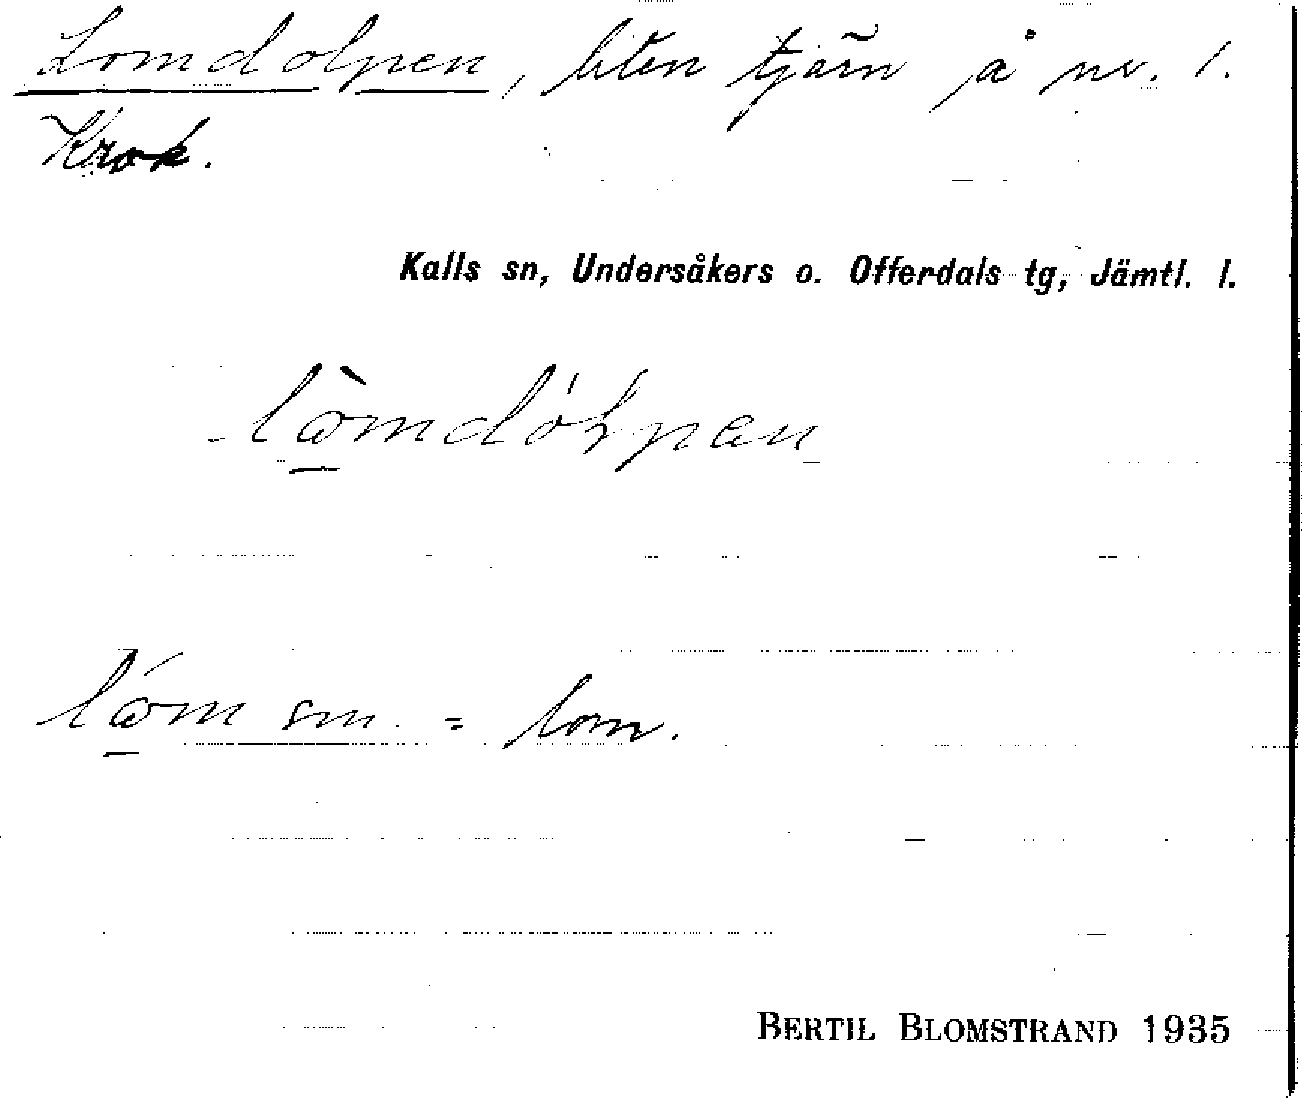 Lomdolpen, liten tjärn å nr. 1.
Krok.
Kalls sn, Undersåkers o. Offerdals tg, Jämtl. l.
sm. = lom.
BERTIL BLOMSTRAND 1935